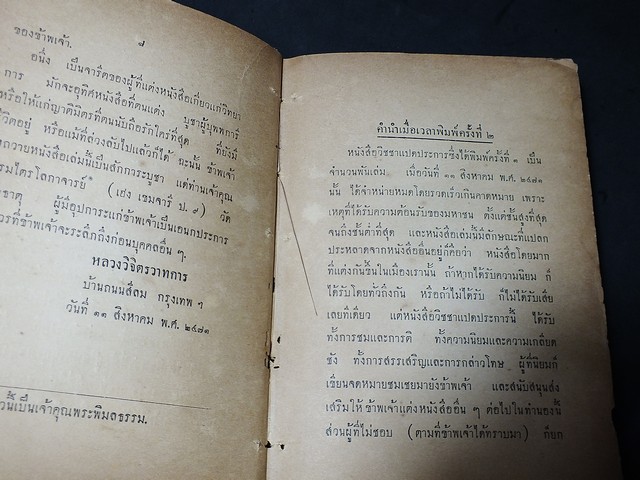 ของข้าพเจ้า.
๗
อนึ่ง เป็นจารีตของผู้ที่แต่งหนังสือเกี่ยวแก่วิทยา
การ มักจะอุทิศหนังสือที่ตนแต่ง บูชาผู้บุพพการี
หรือให้แก่ญาติมิตรที่ตนนับถือรักใคร่ที่สุด ที่ยังมี
ชีวิตอยู่ หรือแม้ที่ล่วงลับไปแล้วก็ได้ ฉะนั้น ข้าพเจ้า
ถวายหนังสือเล่มนี้เป็นสักการะบูชา แด่ท่านเจ้าคุณ
ธรรมไตรโลกาจารย์* (เฮง เขมจารี ป. ๙) วัด
ธาตุ ผู้มีอุปการะแก่ข้าพเจ้าเป็นเอนกประการ
ควรที่ข้าพเจ้าจะระลึกถึงก่อนบุคคลอื่น ๆ.
หลวงวิจิตรวาทการ
บ้านถนนสีลม กรุงเทพ ฯ
วันที่ ๑๑ สิงหาคม พ.ศ. ๒๔๗๑
วนี้เป็นเจ้าคุณพระพิมลธรรม.
คำนำเมื่อเวลาพิมพ์ครั้งที่ ๒
หนังสือวิชชาแปดประการซึ่งได้พิมพ์ครั้งที่ ๑ เป็น
จำนวนพันเล่ม เมื่อวันที่ ๑๑ สิงหาคม พ.ศ. ๒๔๗๑
นั้น ได้จำหน่ายหมดโดยรวดเร็วเกินคาดหมาย เพราะ
เหตุที่ได้รับความต้อนรับของมหาชน ตั้งแต่ชั้นสูงที่สุด
จนถึงชั้นต่ำที่สุด และหนังสือเล่มนี้มีลักษณะที่แปลก
ประหลาดจากหนังสืออื่นอยู่ก็คือว่า หนังสือโดยมาก
ที่แต่งกันขึ้นในเมืองเรานั้น ถ้าหากได้รับความนิยม ก็
ได้รับโดยทั่วถึงกัน หรือถ้าไม่ได้รับ ก็ไม่ได้รับเสีย
เลยทีเดียว แต่หนังสือวิชชาแปดประการนี้ ได้รับ
ทั้งการชมและการติ ทั้งความนิยมและความเกลียด
ชัง ทั้งการสรรเสริญและการกล่าวโทษ ผู้ที่นิยมก็
เขียนจดหมายชมเชยมายังข้าพเจ้า และสนับสนุนส่ง
เสริมให้ข้าพเจ้าแต่งหนังสืออื่น ๆ ต่อไปในทำนองนี้
ส่วนผู้ที่ไม่ชอบ (ตามที่ข้าพเจ้าได้ทราบมา) ก็ยก